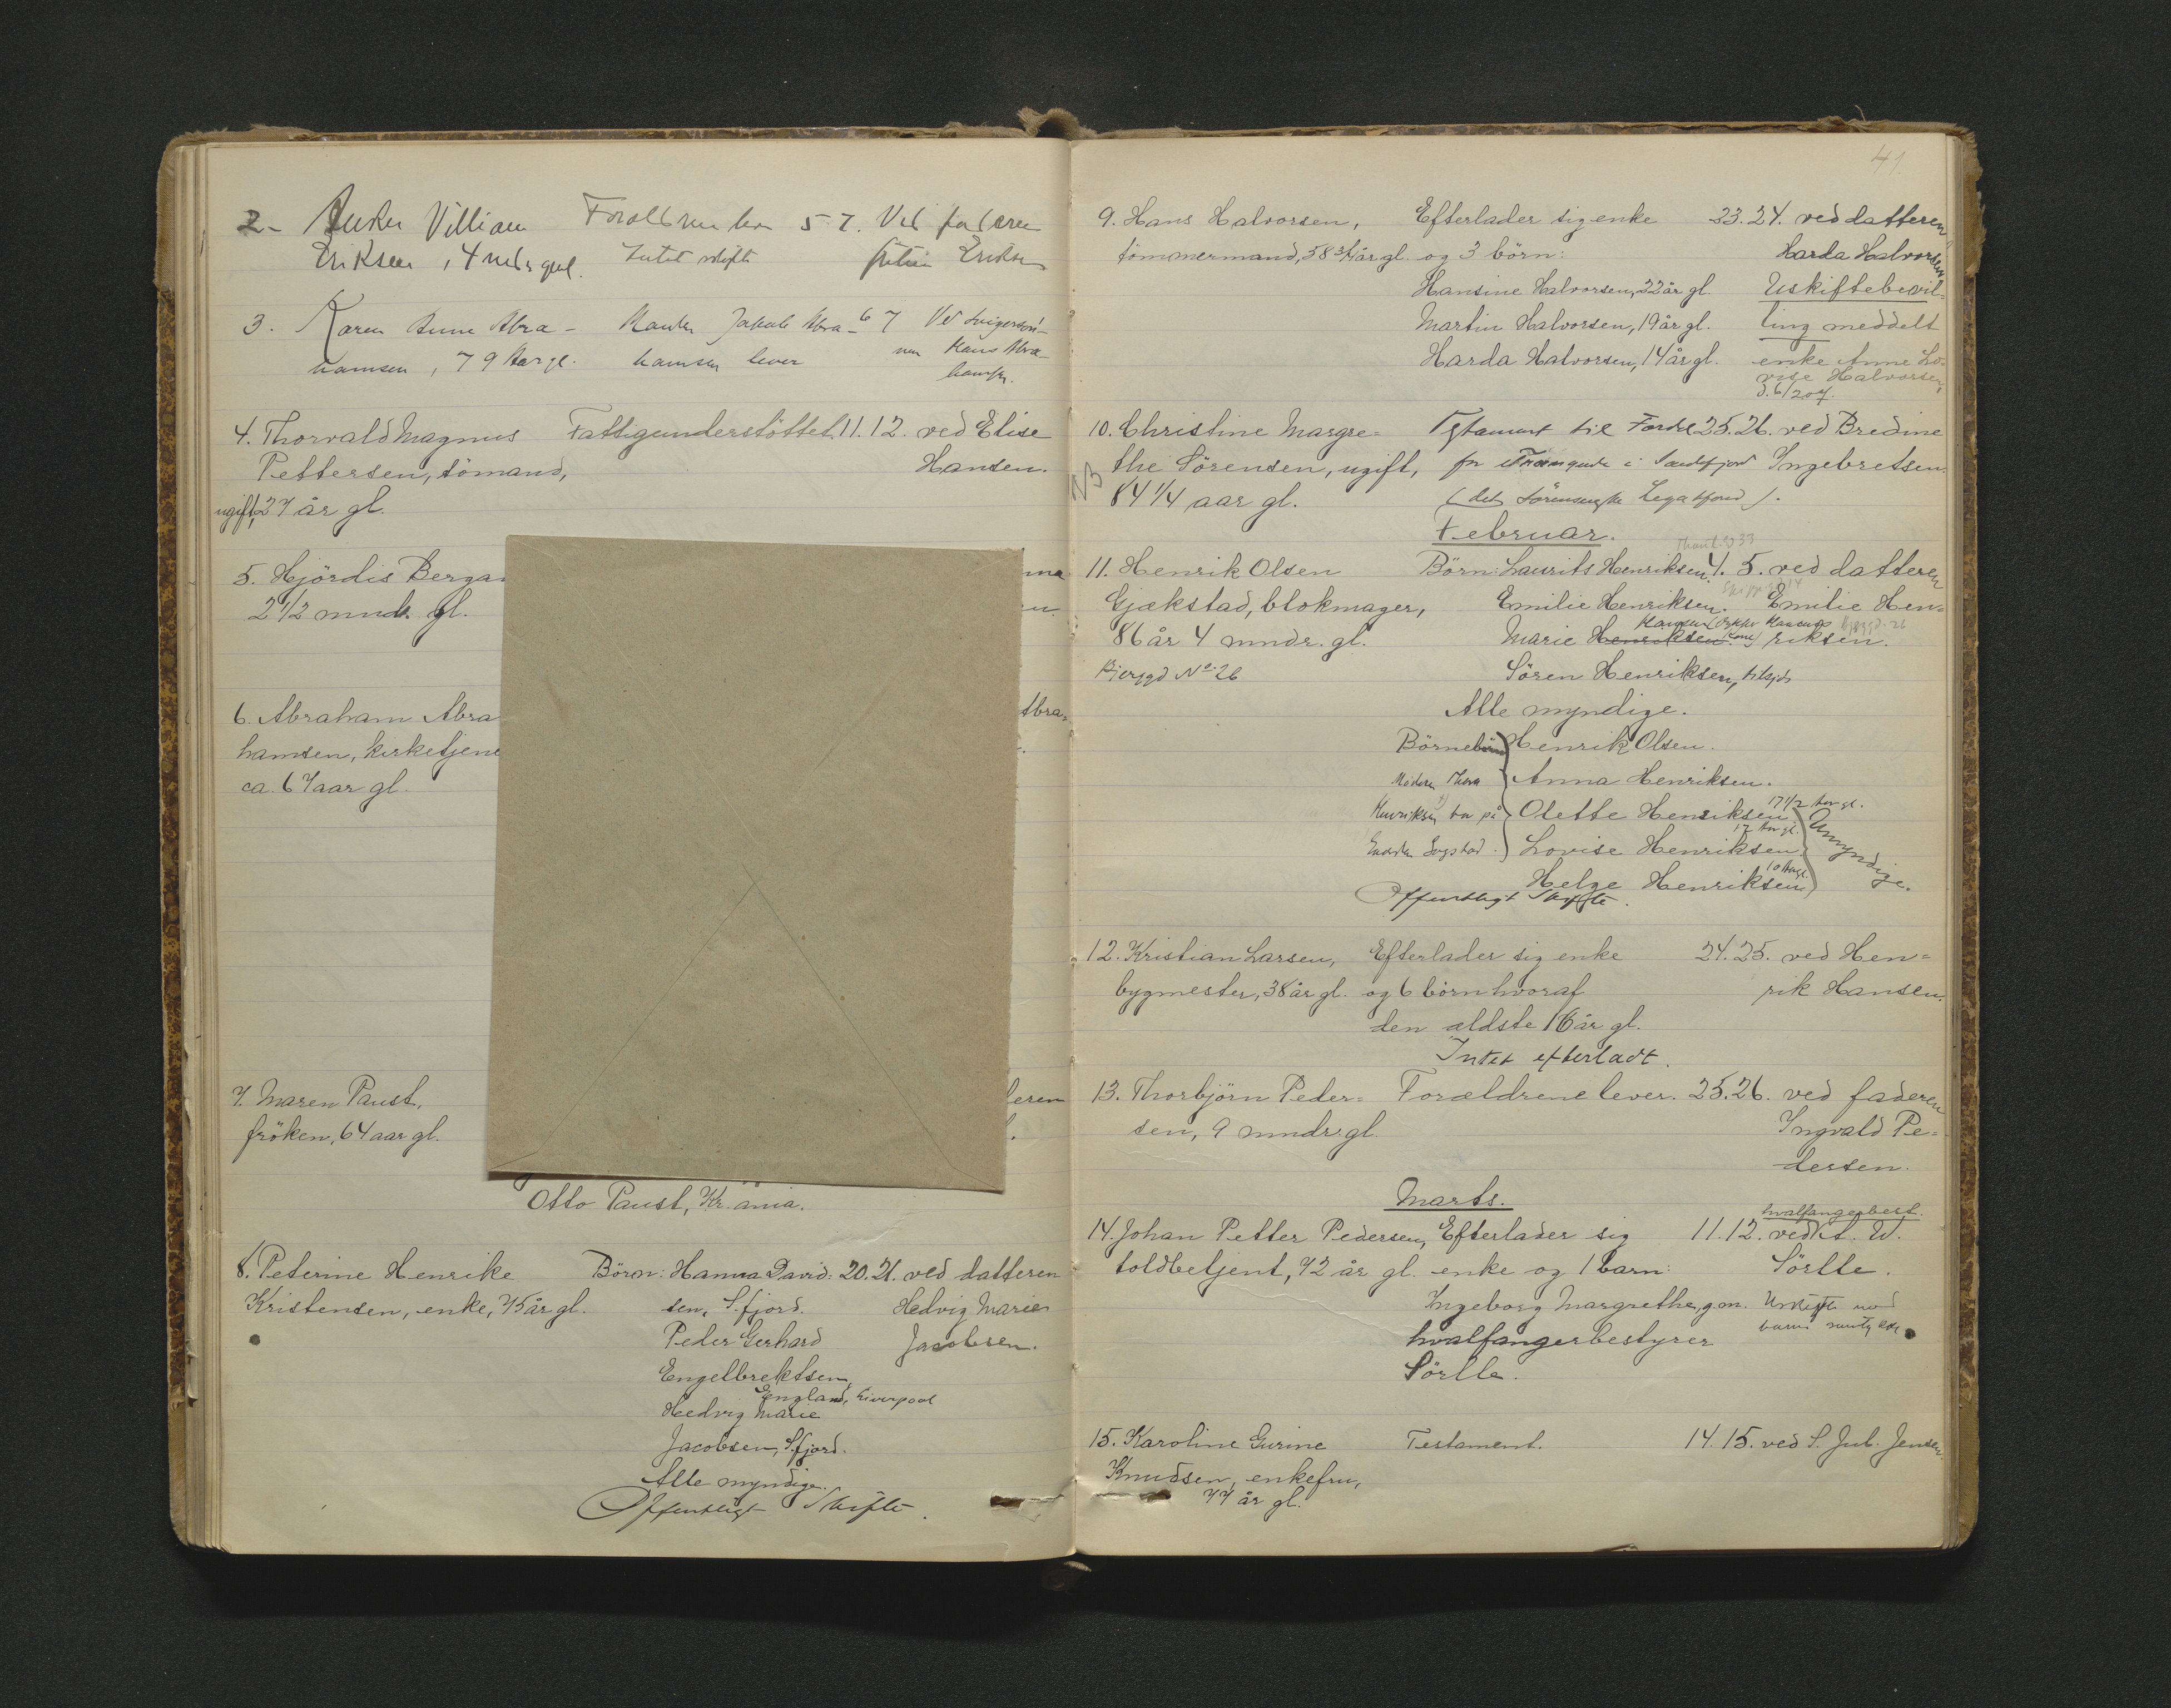 2. Anker Villiam Forældrene lever 5 7. Ved faderen
Eriksen, 4 mdr gml. Intet skifte Eriksen
3. Karen Anne Abra- Manden Jakob Abra- 6 7 Ved Svigersøn-
hamsen, 79 Aar gl. hamsen lever nen Hans Abra-
hamsen.
4. Thorvald Magnus Fattigunderstöttet. 11.12. ved Elise
Pettersen, sömand, Hansen.
ugift, 27 år gl.
5. Hjördis
2 1/2 mndr. gl.
6. Abraham Abra Abra=
hamsen, kirketjene
ca. 67 aar gl.
7. Maren Paust,
fröken, 64 aar gl.
Otto Paust, Kr.ania.
8. Peterine Henrike Börn: Hanna David= 20.21. ved datteren
Kristensen, enke, 75 år gl. sen, S.fjord. Hedvig Marie
Peder Gerhard Jacobsen.
Engelbrektsen,
England, Liverpool
Hedvig Marie
Jacobsen, S.fjord.
Alle myndige.
Offentligt Skifte.
41
9. Hans Halvorsen, Efterlader sig enke 23.24. ved datteren
tömmermand, 58 3/4 år gl. og 3 börn: Harda Halvorsen
Hansine Halvorsen, 22 år gl. Uskiftebevil=
Martin Halvorsen, 19 år gl. ling meddelt
Harda Halvorsen, 14 år gl. enke Anne Lo=
vise Halvorsen,
d. 6/2 07.
10. Christine Margre= Testament til Fordel 25.26. ved Bredine
NB
the Sörensen, ugift, for i Sandefjord Ingebretsen.
84 1/4 aar gl. (det Sörensenske Legatfond).
Februar.
11. Henrik Olsen Börn: Laurits Henriksen. 4. 5. ved datteren
Gjækstad, blokmager, Emilie Henriksen. Emilie Hen=
86 år 4 mndr. gl. Marie Henriksen riksen.
Bjerggd No 26 Sören Henriksen,
Alle myndige.
Börnebörn Henrik Olsen.
Moderen Thora Anna Henriksen.
Henriksen bor på Olette Henriksen 17 1/2 Aar gl.
Lovise Henriksen 12 Aar gl. Umyndige.
Helge Henriksen 10 Aar gl.
Offentligt Skifte.
12. Kristian Larsen, Efterlader sig enke 24.25. ved Hen=
bygmester, 38 år gl. og 6 börn hvoraf rik Hansen.
den ældste 16 år gl.
Intet efterladt.
13. Thorbjörn Peder= Forældrene lever. 25.26. ved faderen
sen, 9 mndr. gl. Ingvald Pe=
dersen.
Marts.
hvalfangerbest.
14. Johan Petter Pedersen, Efterlader sig 11.12. ved
toldbetjent, 72 år gl. enke og 1 barn: Sörlle.
Ingeborg Margrethe, g.m. Uskifte med
hvalfangerbestyrer
Sörlle.
15. Karoline Gurine Testament. 14.15. ved S. Jul. Jensen
Knudsen, enkefru,
77 år gl.